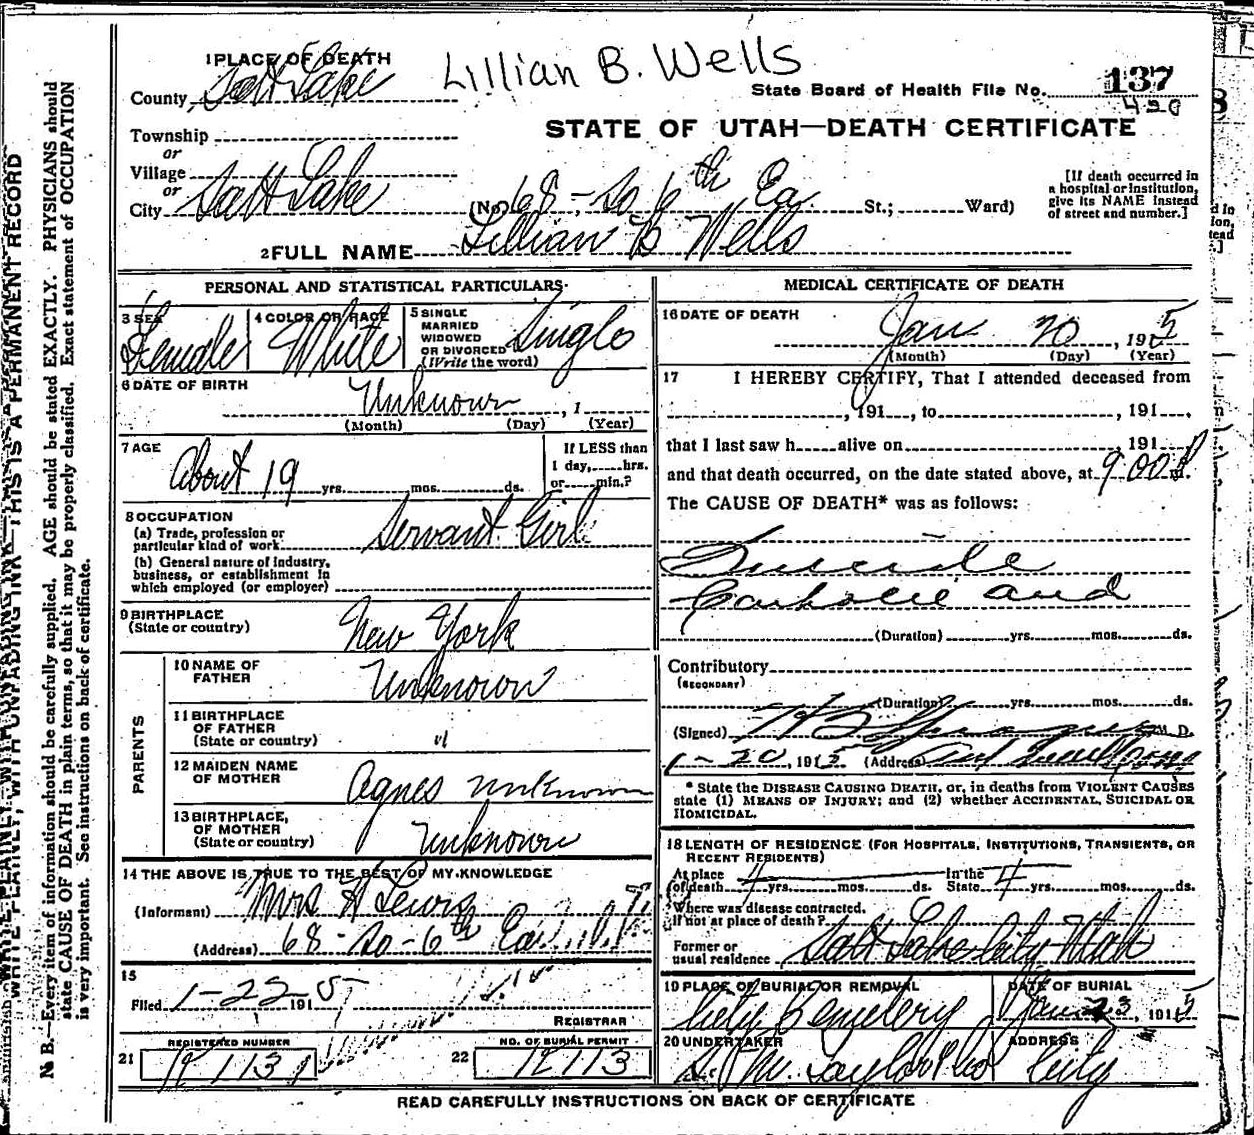 Lillian B. Wells
1 PLACE OF DEATH
County Salt Lake
State Board of Health File No. 137
420
STATE OF UTAH—DEATH CERTIFICATE
Township
or
Village
or
City Salt Lake (No. 68 - So 6th Ea. St.; Ward)
[If death occurred in a hospital or institution, give its NAME instead of street and number.]
2 FULL NAME Lillian B Wells
PERSONAL AND STATISTICAL PARTICULARS
3 SEX Female
4 COLOR OR RACE White
5 SINGLE MARRIED WIDOWED OR DIVORCED (Write the word) Single
6 DATE OF BIRTH Unknown, 1
(Month) (Day) (Year)
7 AGE About 19 yrs. mos. ds.
If LESS than 1 day, hrs. or min.?
8 OCCUPATION
(a) Trade, profession or particular kind of work Servant Girl
(b) General nature of industry, business, or establishment in which employed (or employer)
9 BIRTHPLACE
(State or country) New York
PARENTS
10 NAME OF FATHER Unknown
11 BIRTHPLACE OF FATHER (State or country) "
12 MAIDEN NAME OF MOTHER Agnes unknown
13 BIRTHPLACE, OF MOTHER (State or country) Unknown
14 THE ABOVE IS TRUE TO THE BEST OF MY KNOWLEDGE
(Informant) Mrs H Lewis
(Address) 68 - So - 6th Ea
15
Filed 1-22-1915
REGISTRAR
REGISTERED NUMBER
21
NO. OF BURIAL PERMIT
22
MEDICAL CERTIFICATE OF DEATH
16 DATE OF DEATH
Jan 20, 1915
(Month) (Day) (Year)
17 I HEREBY CERTIFY, That I attended deceased from
, 191 , to , 191 ,
that I last saw h alive on , 191
and that death occurred, on the date stated above, at 9.00 P m.
The CAUSE OF DEATH* was as follows:
Suicide
Carbolic acid
(Duration) yrs. mos. ds.
Contributory
(SECONDARY)
(Duration) yrs. mos. ds.
(Signed) H B Sprague M. D.
1-20, 1915 (Address)
* State the DISEASE CAUSING DEATH, or, in deaths from VIOLENT CAUSES state (1) MEANS OF INJURY; and (2) whether ACCIDENTAL, SUICIDAL OR HOMICIDAL.
18 LENGTH OF RESIDENCE (FOR HOSPITALS, INSTITUTIONS, TRANSIENTS, OR RECENT RESIDENTS)
At place of death 4 yrs. mos. ds. In the State 4 yrs. mos. ds.
Where was disease contracted, if not at place of death?
Former or usual residence Salt Lake City Utah
19 PLACE OF BURIAL OR REMOVAL City Cemetery
DATE OF BURIAL Jan 23, 1915
20 UNDERTAKER S. M. Taylor & Co
ADDRESS City
READ CAREFULLY INSTRUCTIONS ON BACK OF CERTIFICATE
WRITE PLAINLY, WITH UNFADING INK—THIS IS A PERMANENT RECORD
N. B.—Every item of information should be carefully supplied. AGE should be stated EXACTLY. PHYSICIANS should
state CAUSE OF DEATH in plain terms, so that it may be properly classified. Exact statement of OCCUPATION
is very important. See instructions on back of certificate.